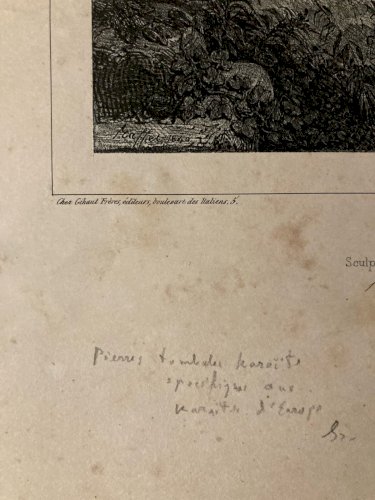 Raffet
Chez Gihaut Frères, éditeurs, boulevart des Italiens, 5.
Sculp
Pierres tombales karaïte
spécifique aux
karaïtes d'Europe